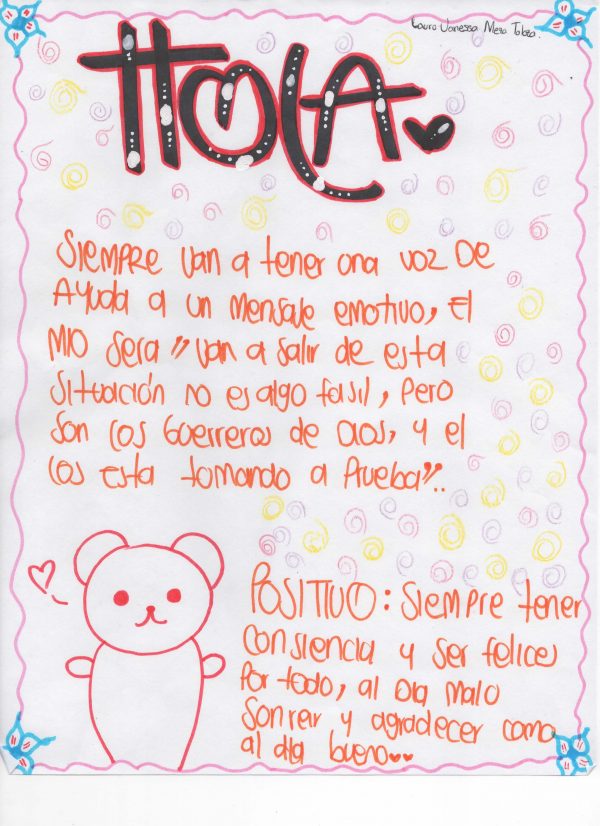 Laura Vanessa Mesa
HOLA
SIEMPRE van a tener una voz DE
AYUDA a un mensaje emotivo, El
MIO Sera "van a salir de esta
situación no es algo fasil, pero
son los Guerreros de Dios, y el
los esta tomando a Prueba"..
POSITIVO: Siempre tener
consiencia y ser felices
Por todo, al Dia Malo
Sonreir y agradecer como
al dia bueno